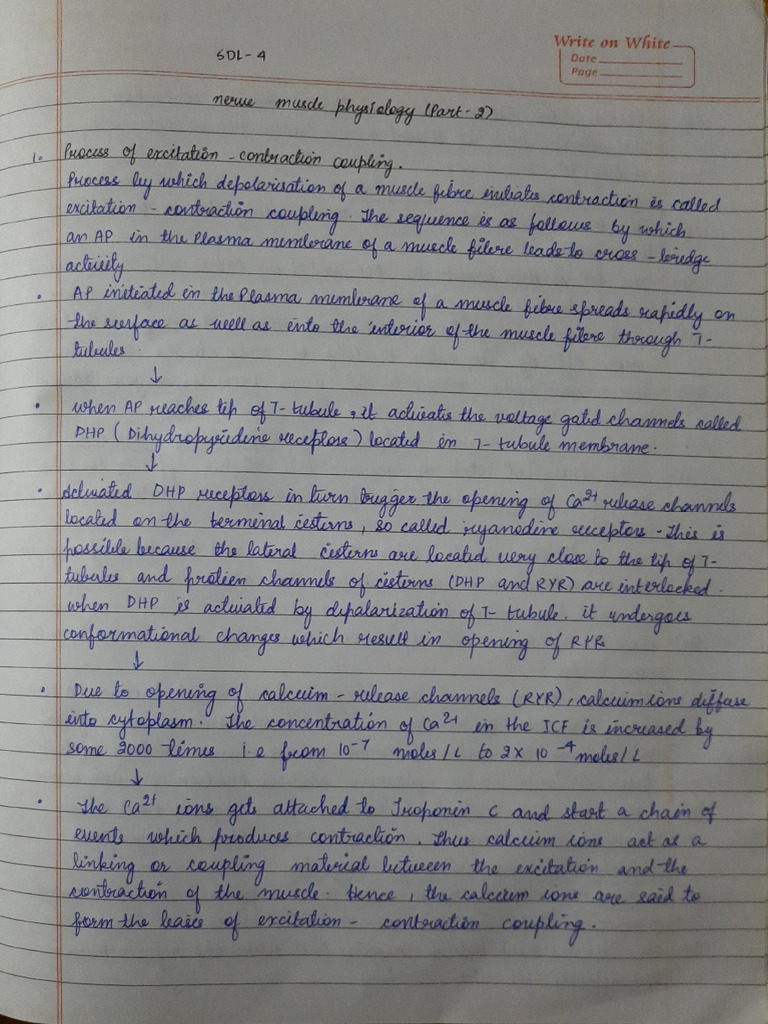 SDL-4
Write on White
Date
Page
nerve muscle physiology (Part-2)
1. Process of excitation-contraction coupling.
Process by which depolarisation of a muscle fibre initiates contraction is called
excitation-contraction coupling. The sequence is as follows by which
an AP in the Plasma membrane of a muscle fibre leads to cross-bridge
activity
• AP initiated in the Plasma membrane of a muscle fibre spreads rapidly on
the surface as well as into the interior of the muscle fibre through T-
tubules.
↓
• when AP reaches tip of T-tubule, it activates the voltage gated channels called
DHP (Dihydropyridine receptors) located in T-tubule membrane.
↓
• Activated DHP receptors in turn trigger the opening of Ca2+ release channels
located on the terminal cisterns, so called ryanodine receptors. This is
possible because the lateral cisterns are located very close to the tip of T-
tubules and protien channels of cisterns (DHP and RYR) are interlocked.
when DHP is activated by depalarization of T-tubule. it undergoes
conformational changes which result in opening of RYR
↓
• Due to opening of calcuim-release channels (RYR), calcuim ions diffuse
into cytoplasm. The concentration of Ca2+ in the ICF is increased by
some 2000 times i.e from 10-7 moles/L to 2x10-4 moles/L
↓
• The Ca2+ ions gets attached to Troponin C and start a chain of
events which produces contraction. Thus calcuim ions act as a
linking or coupling material between the excitation and the
contraction of the muscle. Hence, the calcium ions are said to
form the basis of excitation-contraction coupling.